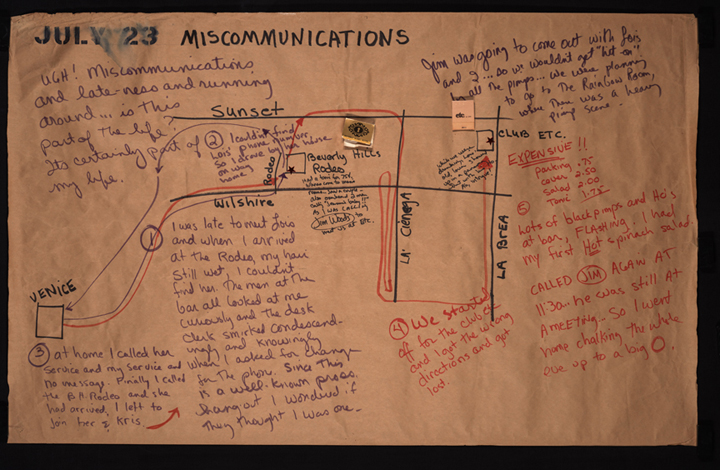 JULY 23 MISCOMMUNICATIONS
UGH! Miscommunications
and late-ness and running
around... is this
part of the life?
Its certainly part of
my life.
Jim was going to come out with Lois
and I... so we wouldn't get "hit on"
by all the pimps... we were planning
to go to the Rainbow Room,
where there was a heavy
pimp scene.
Sunset
② I couldn't find
Lois' phone number
So I drove by her house
on way
home
Rodeo
Beverly
Rodeo
HILLS
Wilshire
as I was calling
Jim Woods to
meet us at Etc.
LA CIENEGA
LA BREA
etc.
CLUB ETC.
EXPENSIVE!!
parking .75
cover 2.50
salad 2.00
Tonic 1.75
VENICE
① I was late to meet Lois
and when I arrived
at the Rodeo, my hair
still wet, I couldn't
find her. The men at the
bar all looked at me
curiously and the desk
clerk smirked condescend-
ingly and knowingly
when I asked for change
for the phone. Since this
is a well-known pross.
hangout I wondered if
they thought I was one.
③ at home I called her
service and my service and
no message. Finally I called
the B.H. Rodeo and she
had arrived, I left to
join her & Kris.
④ We started
off for the club etc
and I got the wrong
directions and got
lost.
⑤
Lots of black pimps and Ho's
at bar, FLASHING. I had
my first Hot spinach salad
CALLED JIM AGAIN AT
11:30.. he was still at
A MEETING.. So I went
home chalking the whole
eve up to a big O.